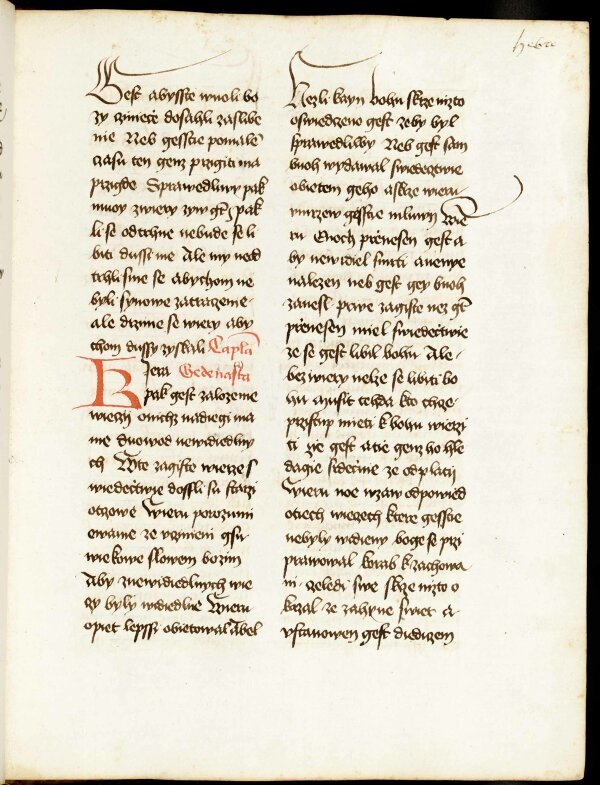 hebre
Gest abysste wuoli bo
zy cziniece dosahli zaslibe
nie Neb gesstie pomale
czasu ten genz przigiti ma
przigde Sprawedliwy pak
muoy zwiery zyw gt pak
li se odtrhne nebude se li
biti dussi me Ale my ned
trhlisme se abychom ne
byli synowe zatraczenie
ale drzme se wiery aby
chom dussy zyskali Capla
Jera Gedenasta
pak gest zalozenie
wieczij onich nadiegi ma
me duowod newidiedlny
ch Wte zagiste wierze s
wiedectwie dossli su starzi
otczowe Wieru porozumi
ewame ze vczinieni gsu
wiekowe slowem bozim
Aby znewidiedlnych wie
czy byly widiedlne Wieru
opiet lepssi obietowal Abel
Nezli kayn bohu skrze nizto
oswiedczeno gest zeby byl
sprawedliwy Neb gest sam
buoh wydawal swiedectwie
obietem geho a skrze wieru
vmrzew gesstie mluwij Wie
ru Enoch prenesen gest a
by newidiel smrti a nenye
nalezen neb gest gey buoh
zanesl prwe zagiste nez gt
prenesen miel swiedectwie
ze se gest libil bohu Ale
bez wiery nelze se libiti bo
hu musie tehda kto chze
przistup mieti k bohu wierzi
ti ze gest a tie genz ho hle
dagie srdecznie ze odplatij
Wieru noe wzaw odpowied
otiech wieczech ktere gesstie
nebyly widieny boge se przi
prawowal korab k zachowa
ni czeledi swe skrze nizto o
kazal ze zahyne swiet a
vstanowen gest diedicem